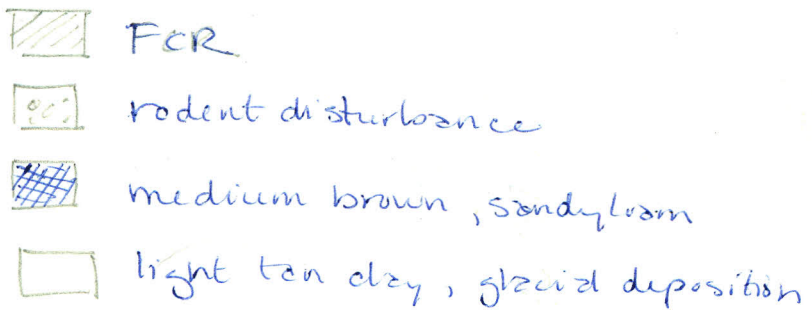 FCR
rodent disturbance
medium brown, sandy loam
light tan clay, glacial deposition